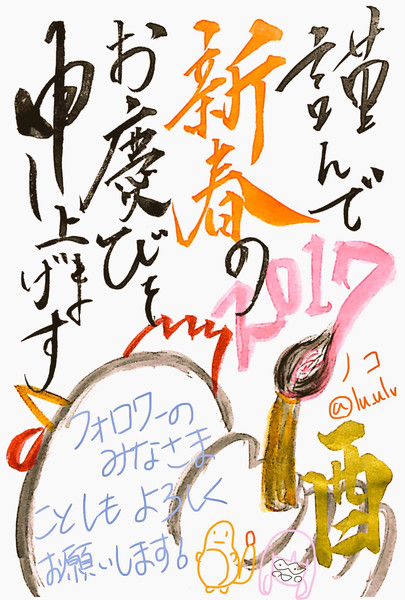 謹んで
新春の
お慶びを
申し上げます
2017
ノコ
@lu_ulv
酉
フォロワーの
みなさま
ことしもよろしく
お願いします!